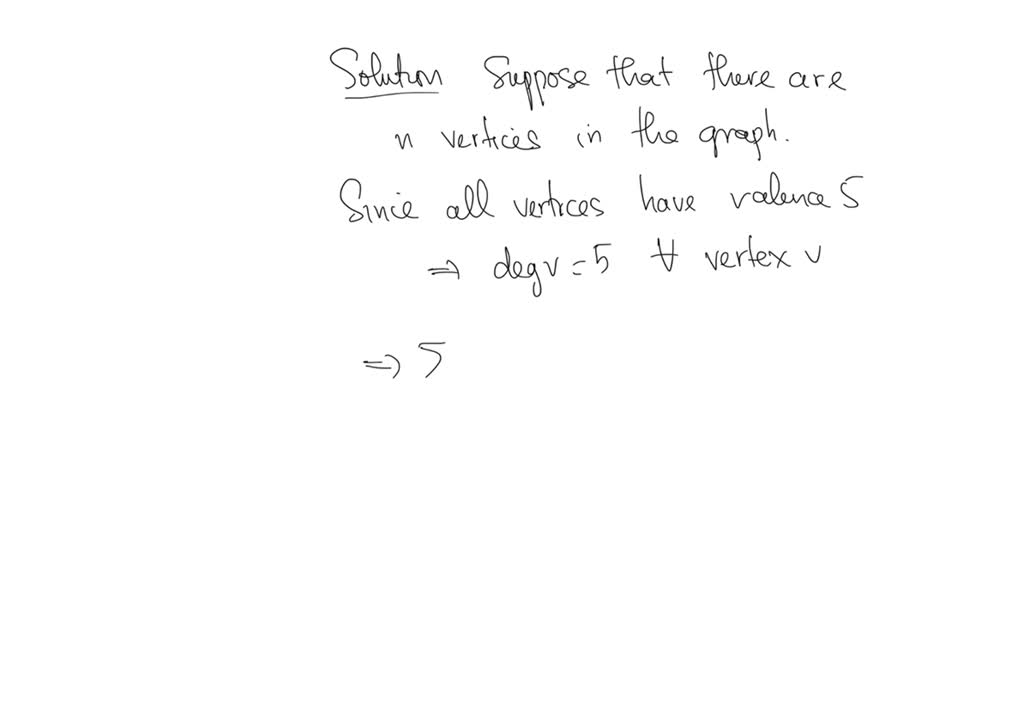 Solution Suppose that there are
n vertices in the graph.
Since all vertices have valence 5
⇒ deg v = 5 ∀ vertex v
⇒ 5